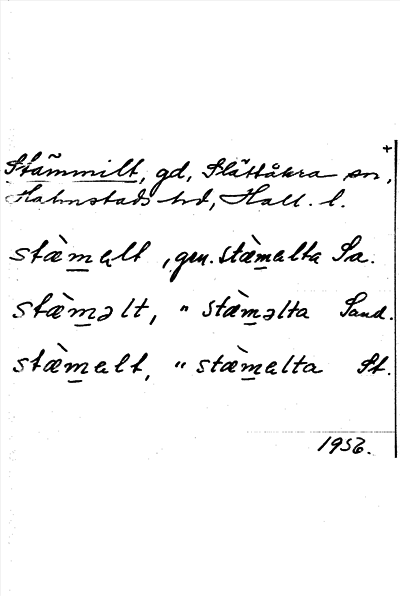 +
Stämmilt, gd, Slättåkra sn,
Halmstads hd, Hall. l.
stæ̀m̲ȧlt, gen. stæ̀m̲alta Sa.
stæ̀m̲əlt, " stæ̀m̲əlta Sand.
stæ̀m̲alt, " stæ̀m̲alta St.
1956.